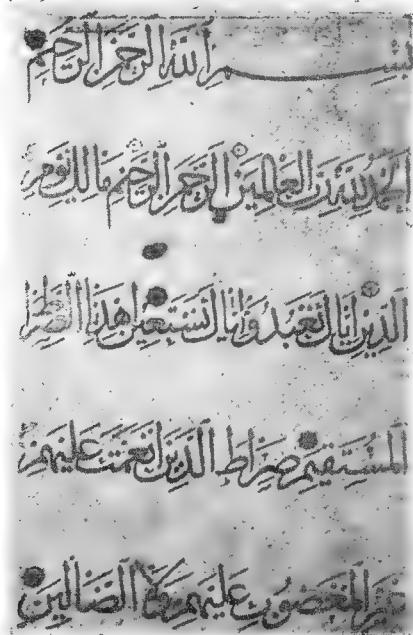 بسم الله الرحمن الرحيم
الحمد لله رب العالمين الرحمن الرحيم مالك يوم
الدين اياك نعبد واياك نستعين اهدنا الصراط
المستقيم صراط الذين انعمت عليهم
غير المغضوب عليهم ولا الضالين